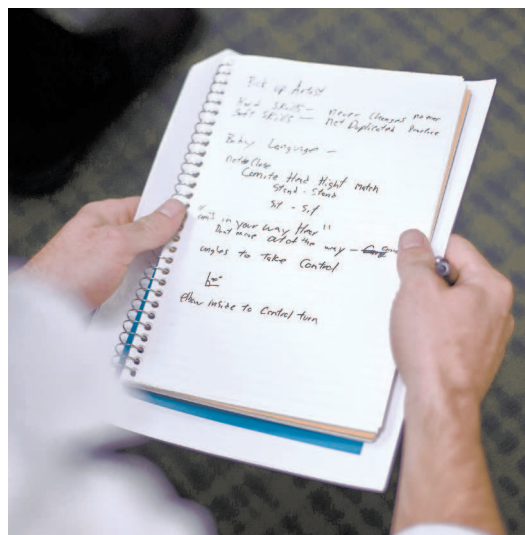 Pick up Artist
Hard Skills - Never Changes
Soft Skills - Not Duplicated Practice
Body Language -
Head Hight match
Stand - Stand
Sit - Sit
in your way Hear"
Dont move out of the way -
angles to Take Control
elbow Inside to Control turn